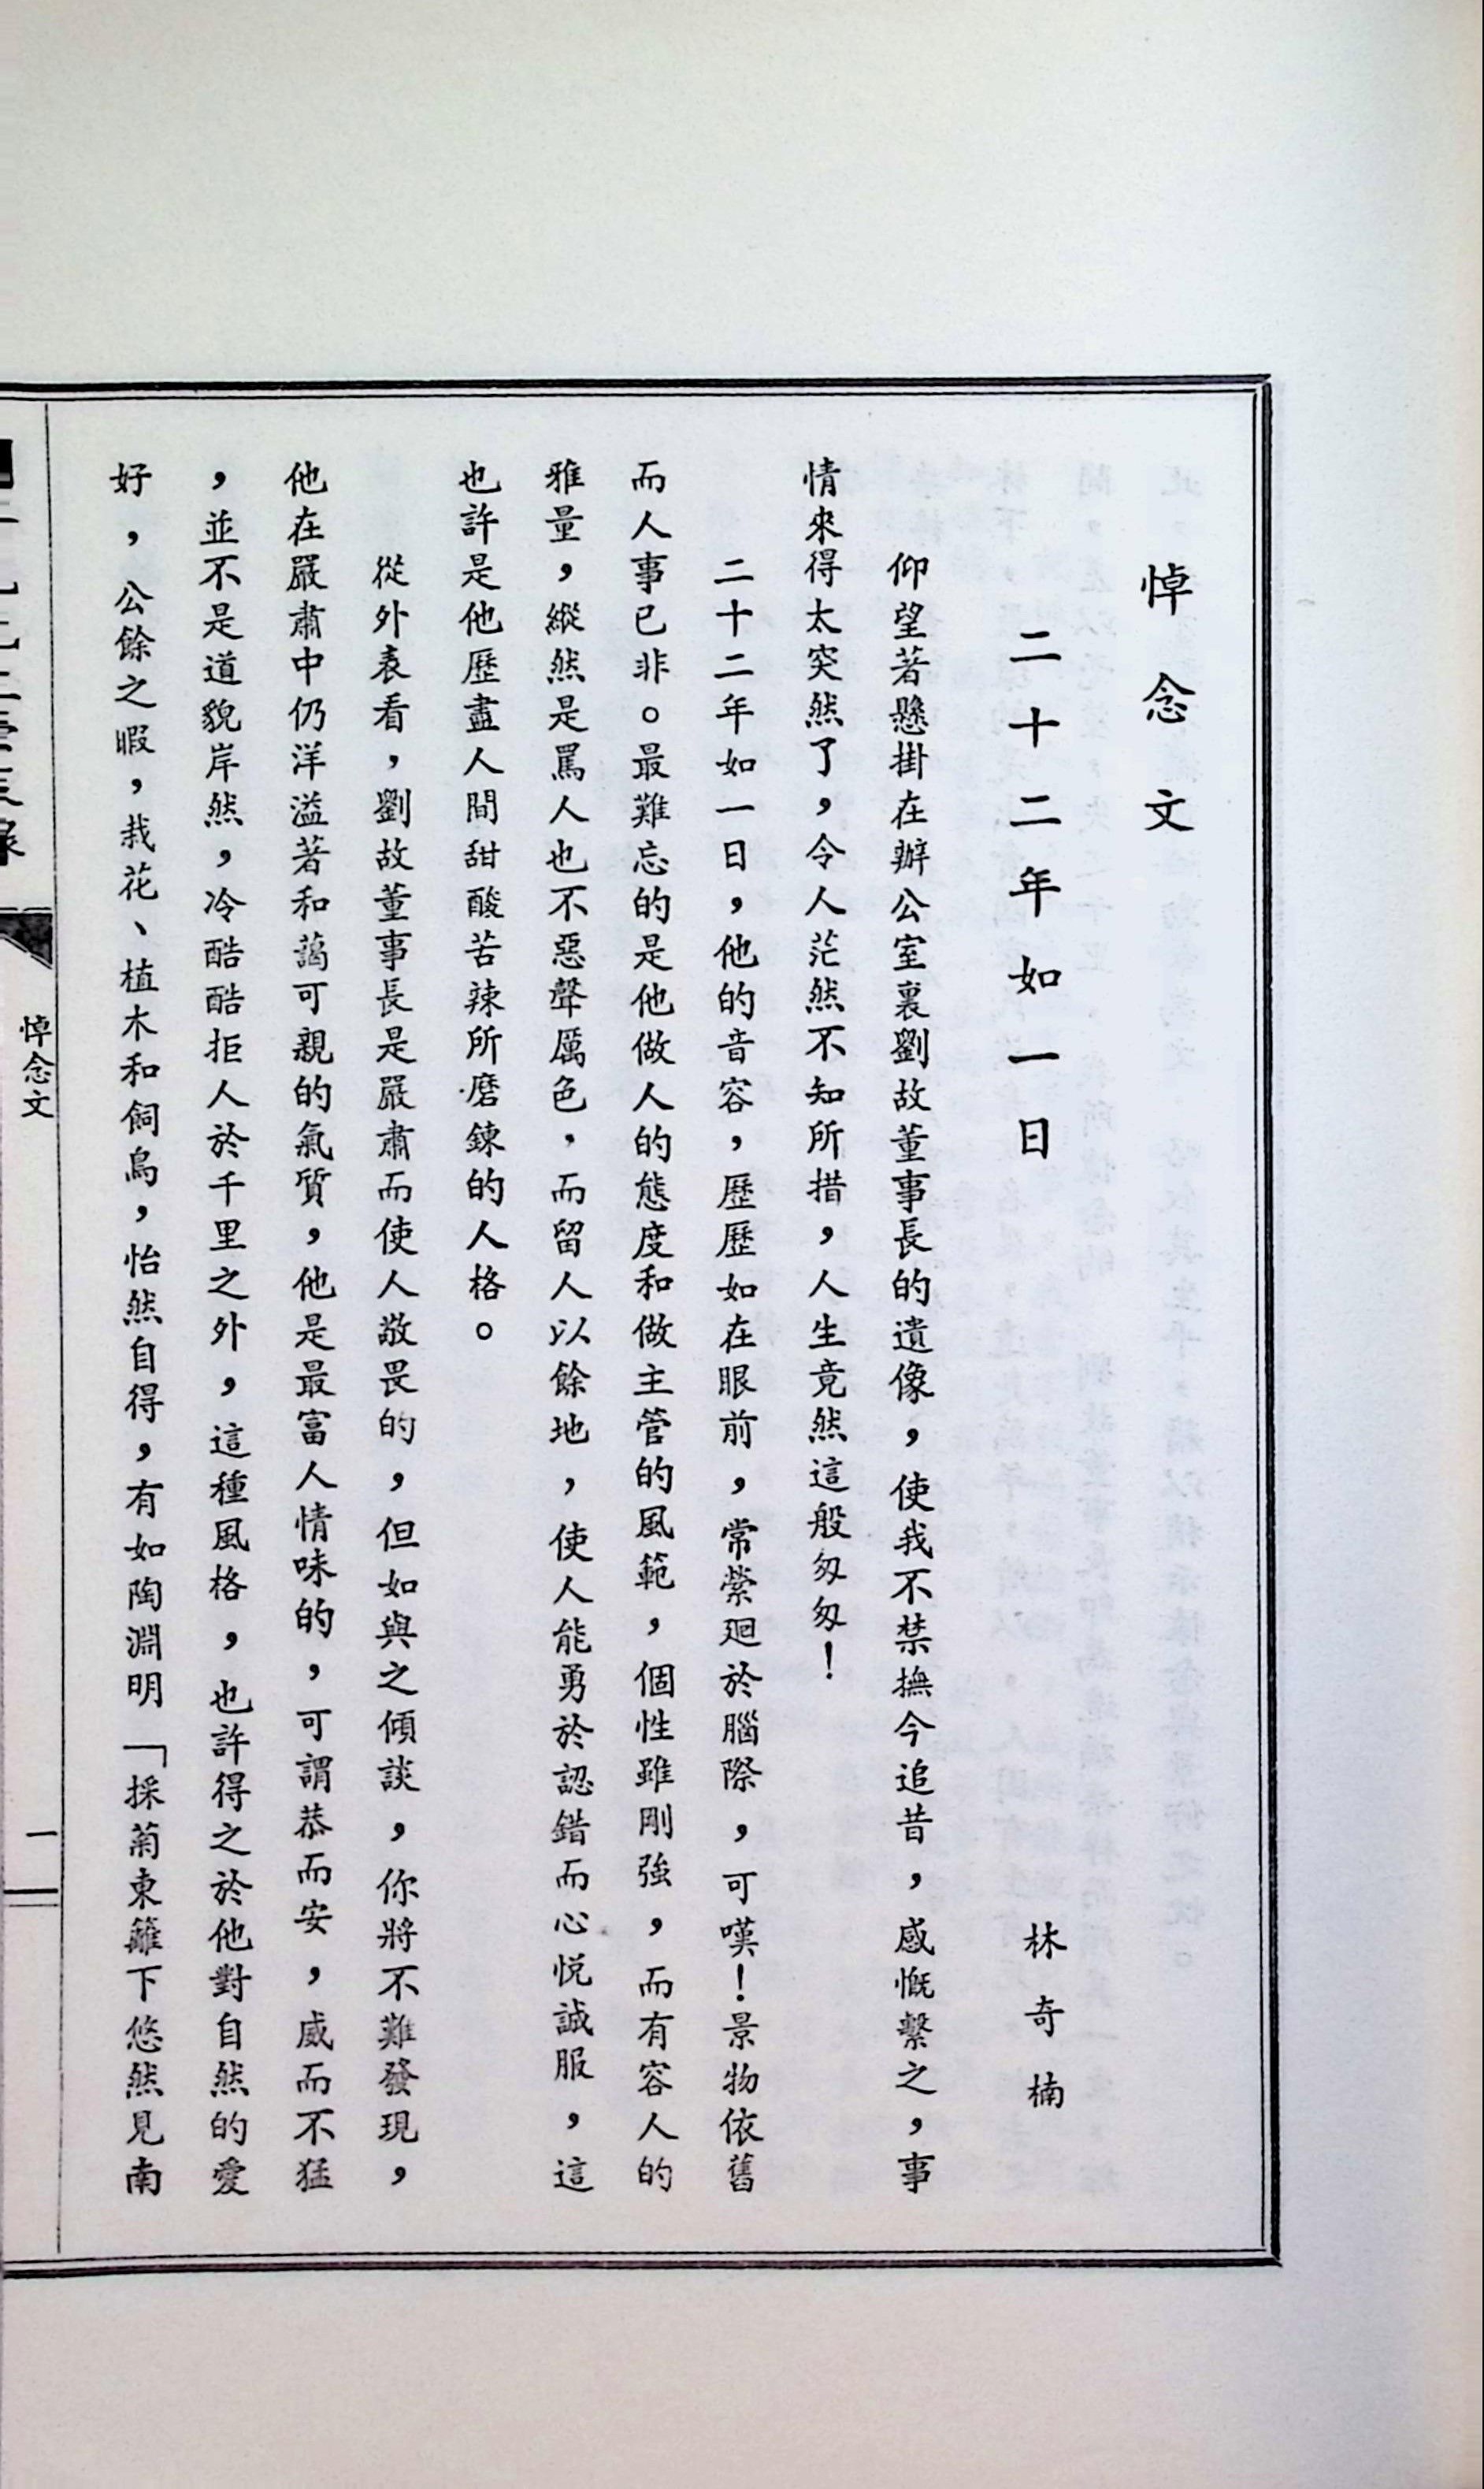 悼念文
二十二年如一日
林奇楠
仰望著懸掛在辦公室裏劉故董事長的遺像，使我不禁撫今追昔，感慨繫之，事
情來得太突然了，令人茫然不知所措，人生竟然這般匆匆！
二十二年如一日，他的音容，歷歷如在眼前，常縈廻於腦際，可嘆！景物依舊
而人事已非。最難忘的是他做人的態度和做主管的風範，個性雖剛強，而有容人的
雅量，縱然是罵人也不惡聲厲色，而留人以餘地，使人能勇於認錯而心悅誠服，這
也許是他歷盡人間甜酸苦辣所磨鍊的人格。
從外表看，劉故董事長是嚴肅而使人敬畏的，但如與之傾談，你將不難發現，
他在嚴肅中仍洋溢著和藹可親的氣質，他是最富人情味的，可謂恭而安，威而不猛
，並不是道貌岸然，冷酷酷拒人於千里之外，這種風格，也許得之於他對自然的愛
好，公餘之暇，栽花、植木和飼鳥，怡然自得，有如陶淵明「採菊東籬下悠然見南
悼念文
一